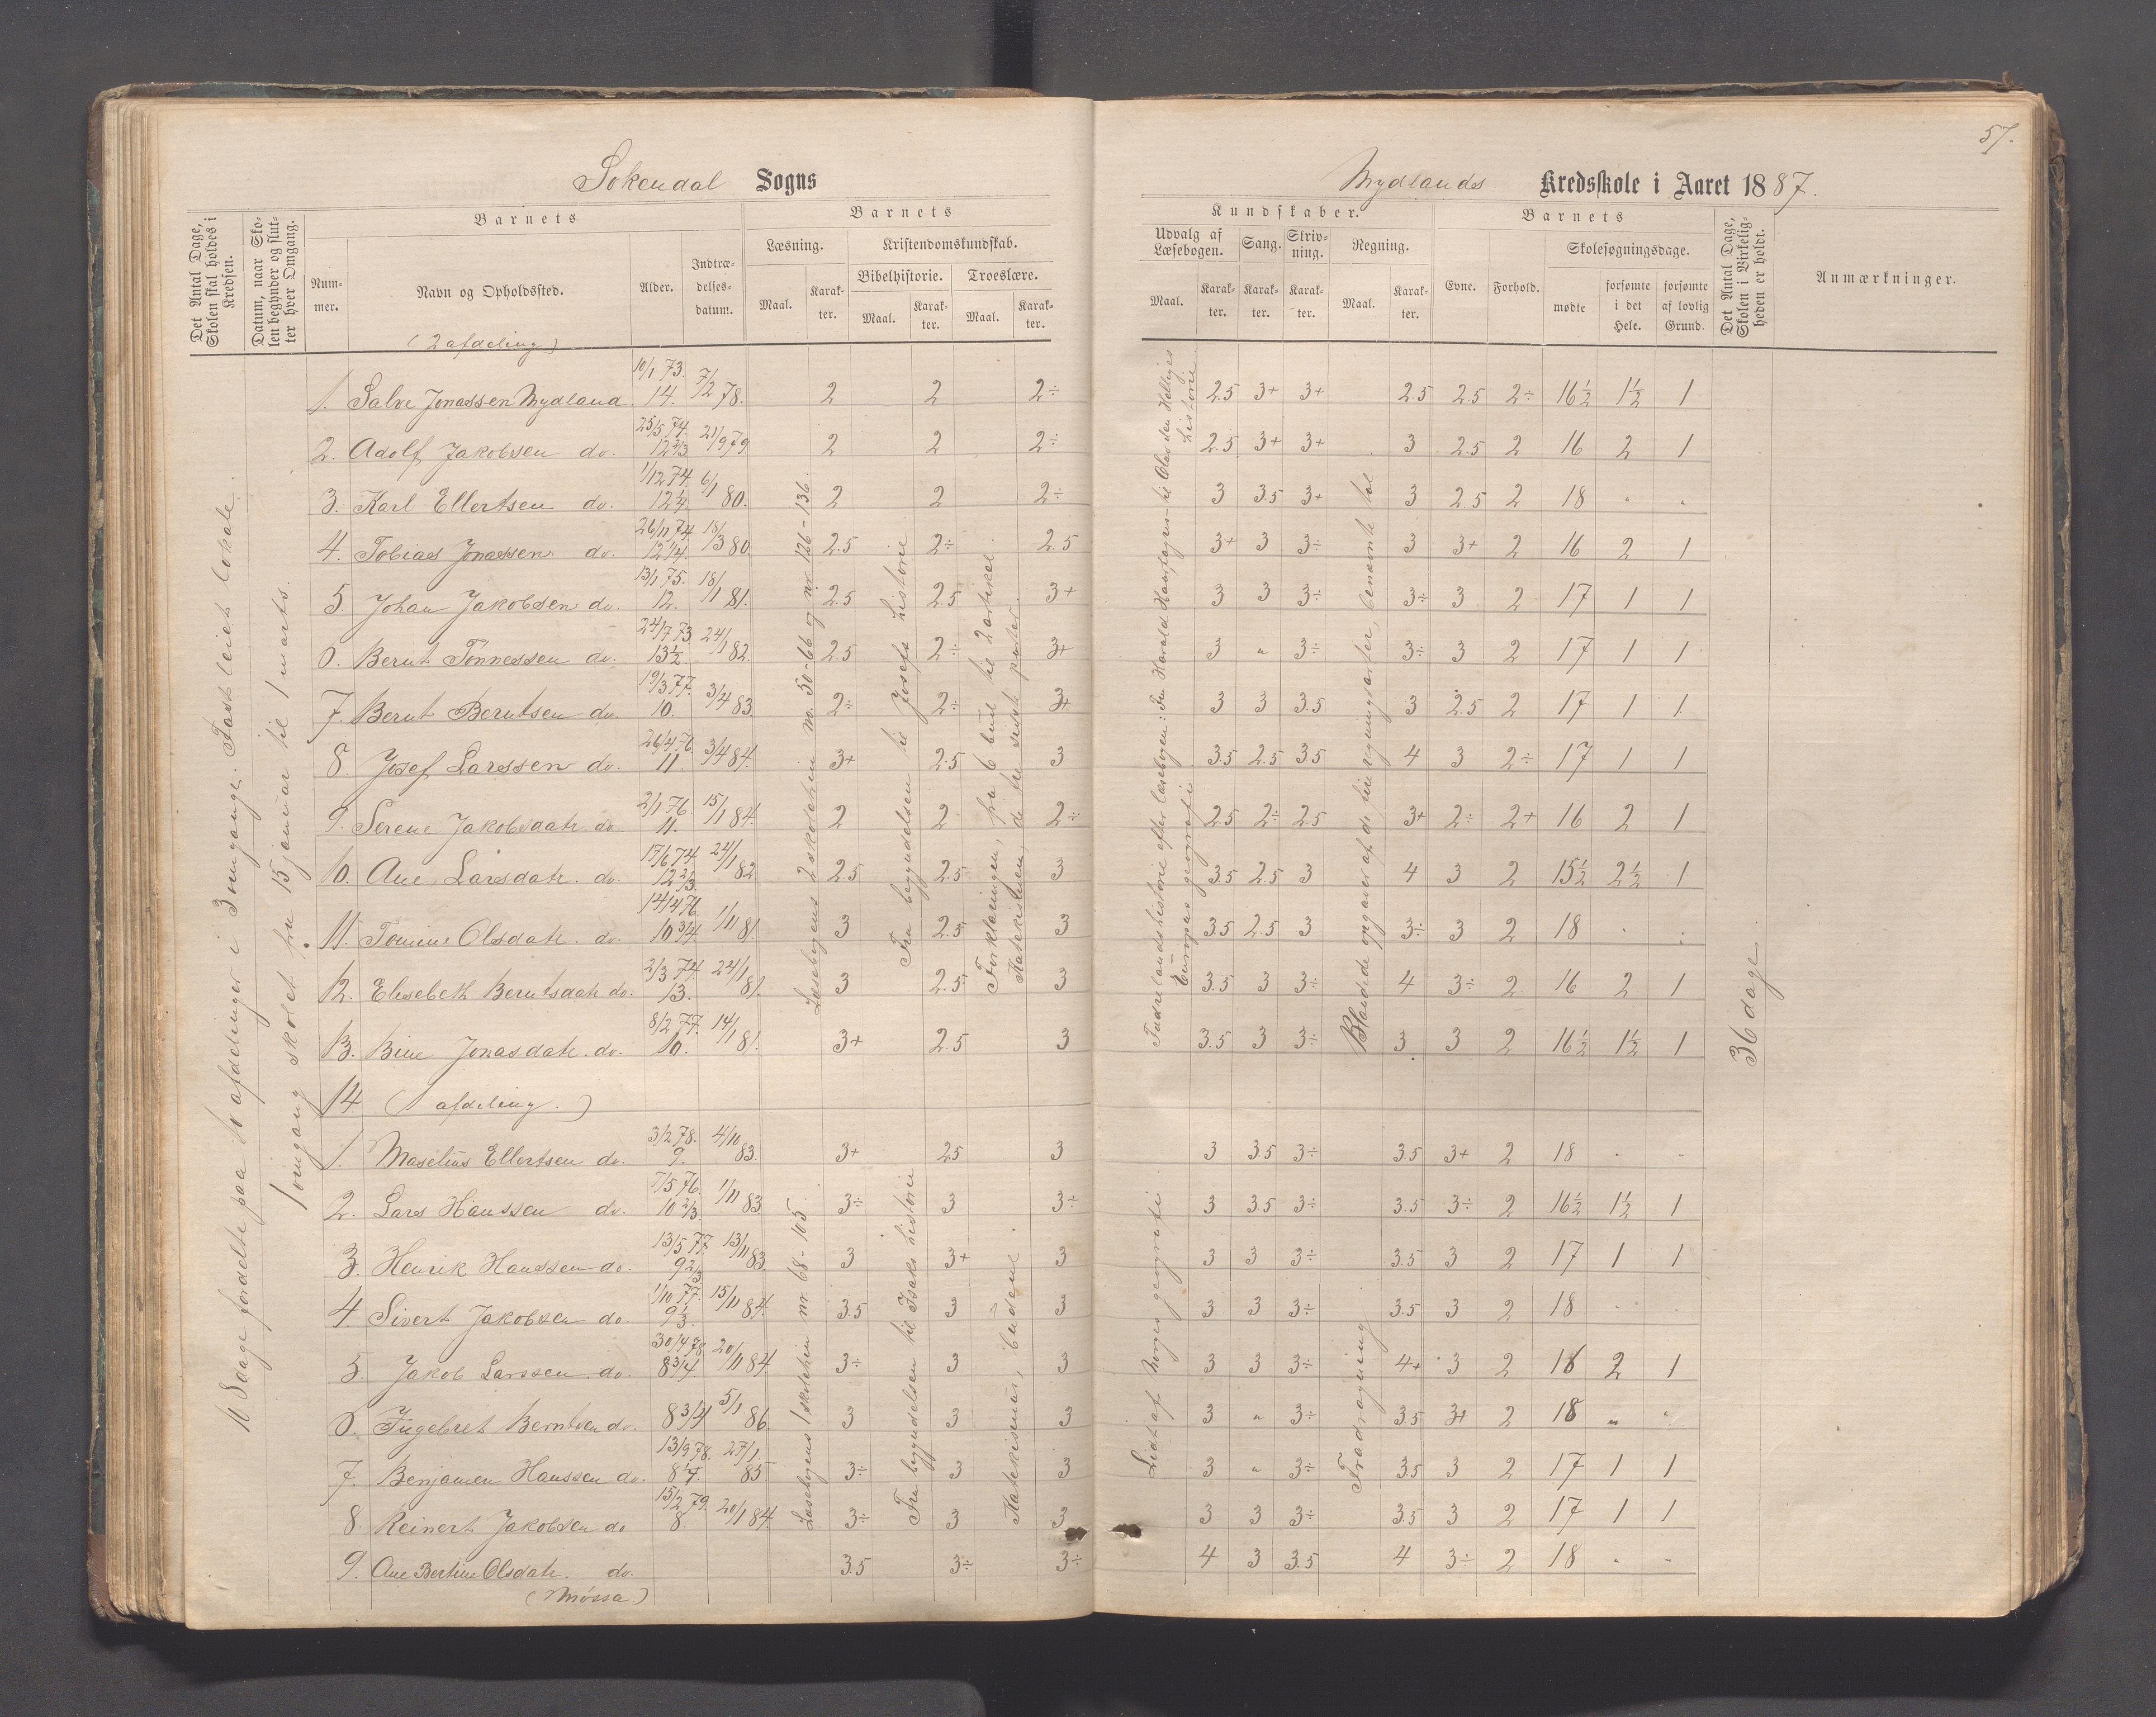 57.
Sokendal Sogns
Mydlands Kredsskole i Aaret 1887.
Det Antal Dage, Skolen skal holdes i Kredsen.
Datum, naar Skolen begynder og slutter hver Omgang.
Barnets
Nummer.
Navn og Opholdssted.
Alder.
Indtrædelsesdatum.
Barnets
Læsning.
Maal.
Karakter.
Kristendomskundskab.
Bibelhistorie.
Maal.
Karakter.
Troeslære.
Maal.
Karakter.
Kundskaber.
Udvalg af Læsebogen.
Maal.
Karakter.
Sang.
Karakter.
Skrivning.
Karakter.
Regning.
Maal.
Karakter.
Barnets
Evne.
Forhold.
Skolesøgningsdage.
mødte
forsømte i det Hele.
forsømte af lovlig Grund.
Det Antal Dage, Skolen i Virkeligheden er holdt.
Anmærkninger.
(2 afdeling)
1. Salve Jonassen Mydland 10/1 73. 14. 7/2 78. 2 2 2÷ 2.5 3+ 3+ 2.5 2.5 2÷ 16½ 1½ 1
2. Adolf Jakobsen do. 25/5 74. 12⅔ 21/9 79. 2 2 2÷ 2.5 3+ 3+ 3 2.5 2 16 2 1
3. Karl Ellertsen do. 1/12 74. 12¼ 6/1 80. 2 2 2÷ 3 3.5 3+ 3 2.5 2 18 " "
4. Tobias Jonassen do. 26/11 74 12¼ 18/3 80 2.5 2÷ 2.5 3+ 3 3÷ 3 3+ 2 16 2 1
5. Johan Jakobsen do. 13/1 75. 12. 18/1 81. 2.5 2.5 3+ 3 3 3÷ 3÷ 3 2 17 1 1
6. Bernt Tønnessen do. 24/7 73 13½ 24/1 82. 2.5 2÷ 3+ 3 " 3÷ 3÷ 3 2 17 1 1
7. Bernt Berntsen do. 19/3 77. 10. 3/4 83 2÷ 2÷ 3+ 3 3 3.5 3 2.5 2 17 1 1
8. Josef Larssen do. 26/4 76. 11. 3/4 84. 3+ 2.5 3 3.5 2.5 3.5 4 3 2÷ 17 1 1
9. Serene Jakobsdatr. do. 2/1 76. 11. 15/1 84. 2 2 2÷ 2.5 2÷ 2.5 3+ 2÷ 2+ 16 2 1
10. Ane Larsdatr. do. 17/6 74 12⅔ 24/1 82 2.5 2.5 3 3.5 2.5 3 4 3 2 15½ 2½ 1
11. Tomine Olsdatr. do. 14/4 76. 10¾ 1/11 81. 3 2.5 3 3.5 2.5 3 3÷ 3 2 18 " "
12. Elisebeth Berntsdatr. do. 2/3 74 13. 24/1 81. 3 2.5 3 3.5 3 3÷ 4 3÷ 2 16 2 1
13. Bine Jonasdatr. do. 8/2 77. 10. 14/1 81. 3+ 2.5 3 3.5 3 3÷ 3 3 2 16½ 1½ 1
14. (1 afdeling.)
1. Maselius Ellertsen do. 3/2 78. 9. 4/10 83. 3+ 2.5 3 3 3.5 3÷ 3.5 3+ 2 18 " "
2. Lars Hanssen do. 7/5 76. 10⅔ 1/11 83 3÷ 3 3÷ 3 3.5 3÷ 3.5 3÷ 2 16½ 1½ 1
3. Henrik Hanssen do. 13/5 77 9⅔ 13/11 83 3 3+ 3 3 3 3÷ 3.5 3 2 17 1 1
4. Sivert Jakobsen do. 1/10 77. 9⅓. 15/11 84. 3.5 3 3 3 3 3÷ 3.5 3 2 18 " "
5. Jakob Larssen do. 30/4 78. 8¾. 20/11 84. 3÷ 3 3 3 3 3÷ 4+ 3 2 16 2 1
6. Ingebret Berntsen do. 8¾ 5/1 86. 3 3 3 3 " 3÷ 3.5 3+ 2 18 " "
7. Benjamen Hanssen do. 13/9 78. 8¼. 27/1. 85 3÷ 3 3 3 " 3÷ 3.5 3 2 17 1 1
8. Reinert Jakobsen do 15/2 79. 8 20/1 84. 3÷ 3 3 3 3 3÷ 3.5 3 2 17 1 1
9. Ane Bertine Olsdatr. do. 3.5 3÷ 3÷ 4 3 3.5 4 3÷ 2 18 " "
(Møssa)
108 dage fordelte paa to afdelinger i 3 omgange. Fast leiet lokale.
1 omgang skolet fra 15 januar til 1 marts.
Læsebogens 2 skoletrin no. 50-66 og nr. 126-136.
Fra begyndelsen til Josefs historie
Forklaringen, fra 6 bud til 2 artikel.
Katekismen, de tre sidste parter.
Fædrelandshistorie efter læsebogen: Fra Harald Haarfagres til Olav den Helliges historie
Europas geografi
Blandede opgaver af de fire regningsarter, benævnte tal
36 dage
Læsebogens 1 skoletrin nr. 68-105.
Fra begyndelsen til Isaks historie
Katekismus, budene.
Lidt af Norges geografi
Fradragning